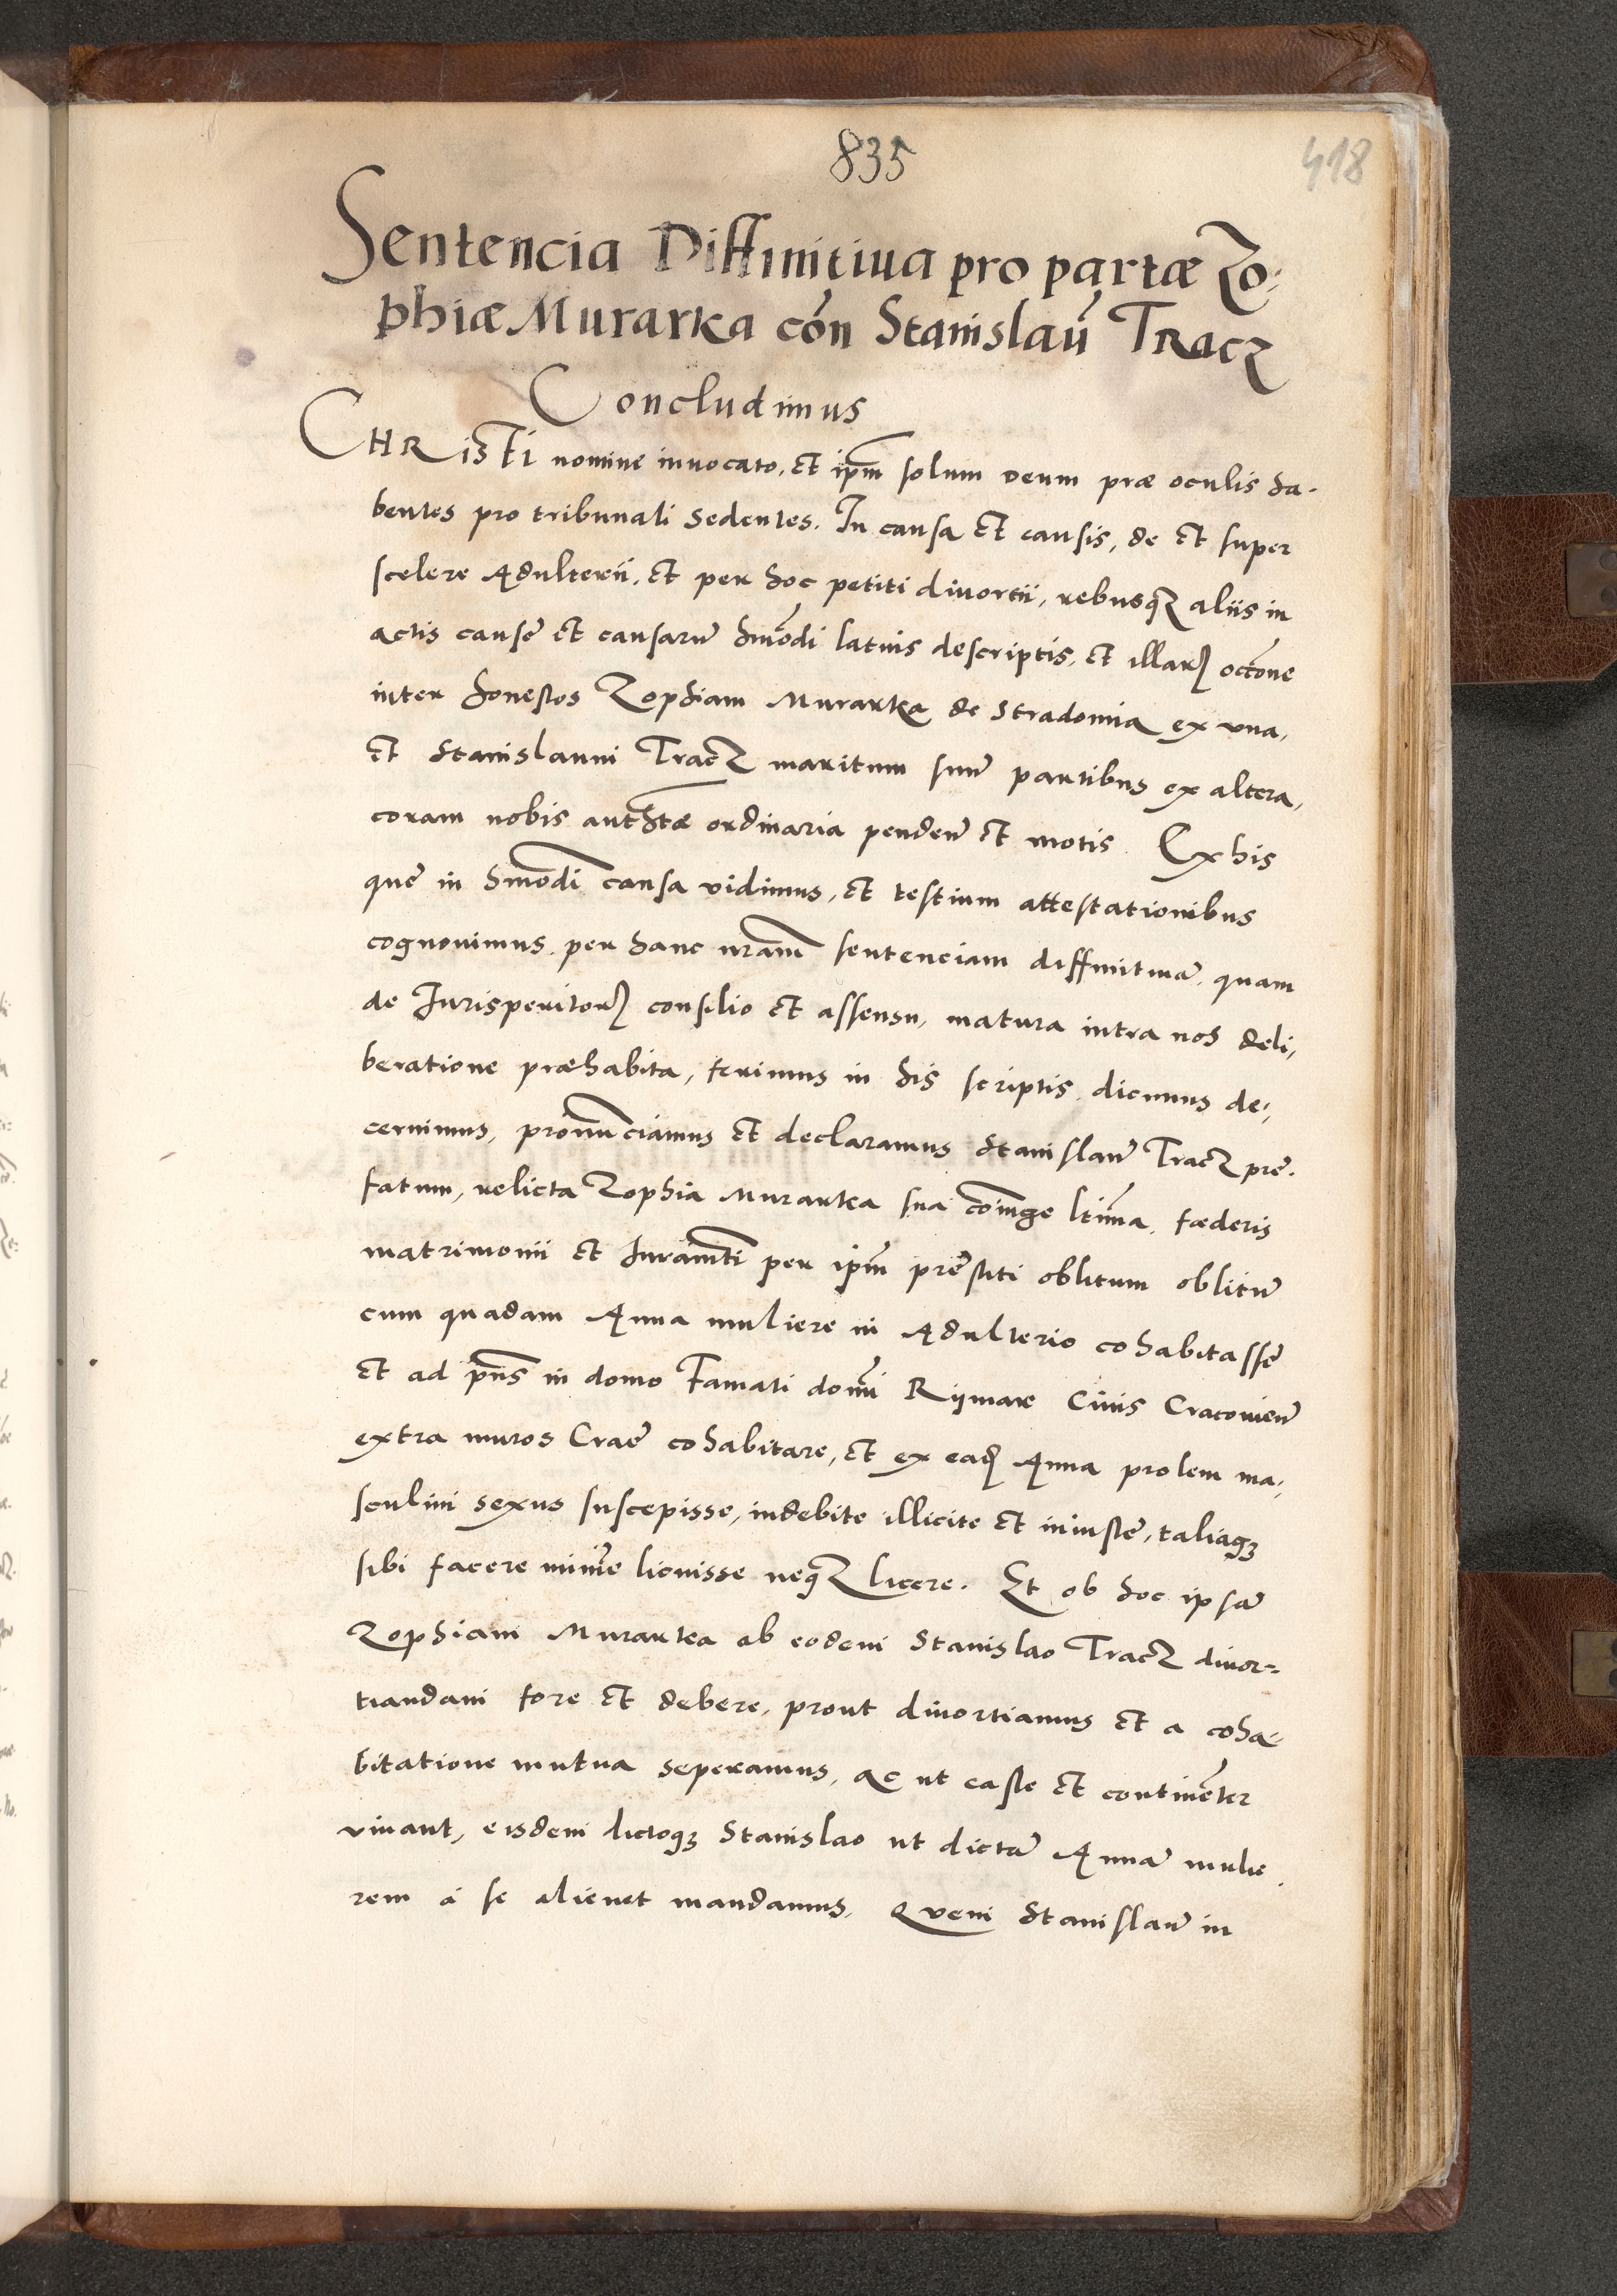 835
418
Sentencia Diffinitiua pro partæ Zo-
phiæ Murarka cón Stanislaú Tracz
Concludimus
CHRISTI nomine inuocato, et ipm̄ solum deum præ oculis ha-
bentes pro tribunali sedentes. In causa et causis, de et super
scelere Adulterii, et per hoc petiti diuortii, rebusqȝ aliis in
actis cause et causarū hmōdi latius descriptis, et illarꝝ occōne
inter honestos Zophiam Murarka de Stradomia ex vna,
et Stanislaum Tracz maritum suū partibus ex altera,
coram nobis authtæ ordinaria pendeñ et motis. Ex his
que in hmōdi causa vidimus, et testium attestationibus
cognouimus, per hanc nram̄ sentenciam diffinitiuā, quam
de Jurisperitorꝝ consilio et assensu, matura intra nos deli-
beratione præhabita, ferimus in his scriptis, dicimus de-
cernimus, pronunciamus et declaramus Stanislaū Tracz pre-
fatum, relicta Zophia Murarka sua coniuge ltima, fœderis
matrimonii et Juramti per ipm̄ prestiti oblitum oblitū
cum quadam Anna muliere in Adulterio cohabitasse
et ad pn̄s in domo Famati domi Rymar Ciuis Cracouieñ
extra muros Craē cohabitare, et ex eadꝫ Anna prolem ma-
sculini sexus suscepisse, indebite illicite et iniuste, taliaqȝ
sibi facere minime licuisse neqȝ licere. Et ob hoc ipsā
Zophiam Murarka ab eodem Stanislao Tracz diuor-
tiandam fore et debere, prout diuortiamus et a coha-
bitatione mutua seperamus, ac ut caste et continēter
viuant, eisdem dictoqȝ Stanislao ut dictā Annā mulie
rem á se alienet mandamus. Quem Stanislaū in